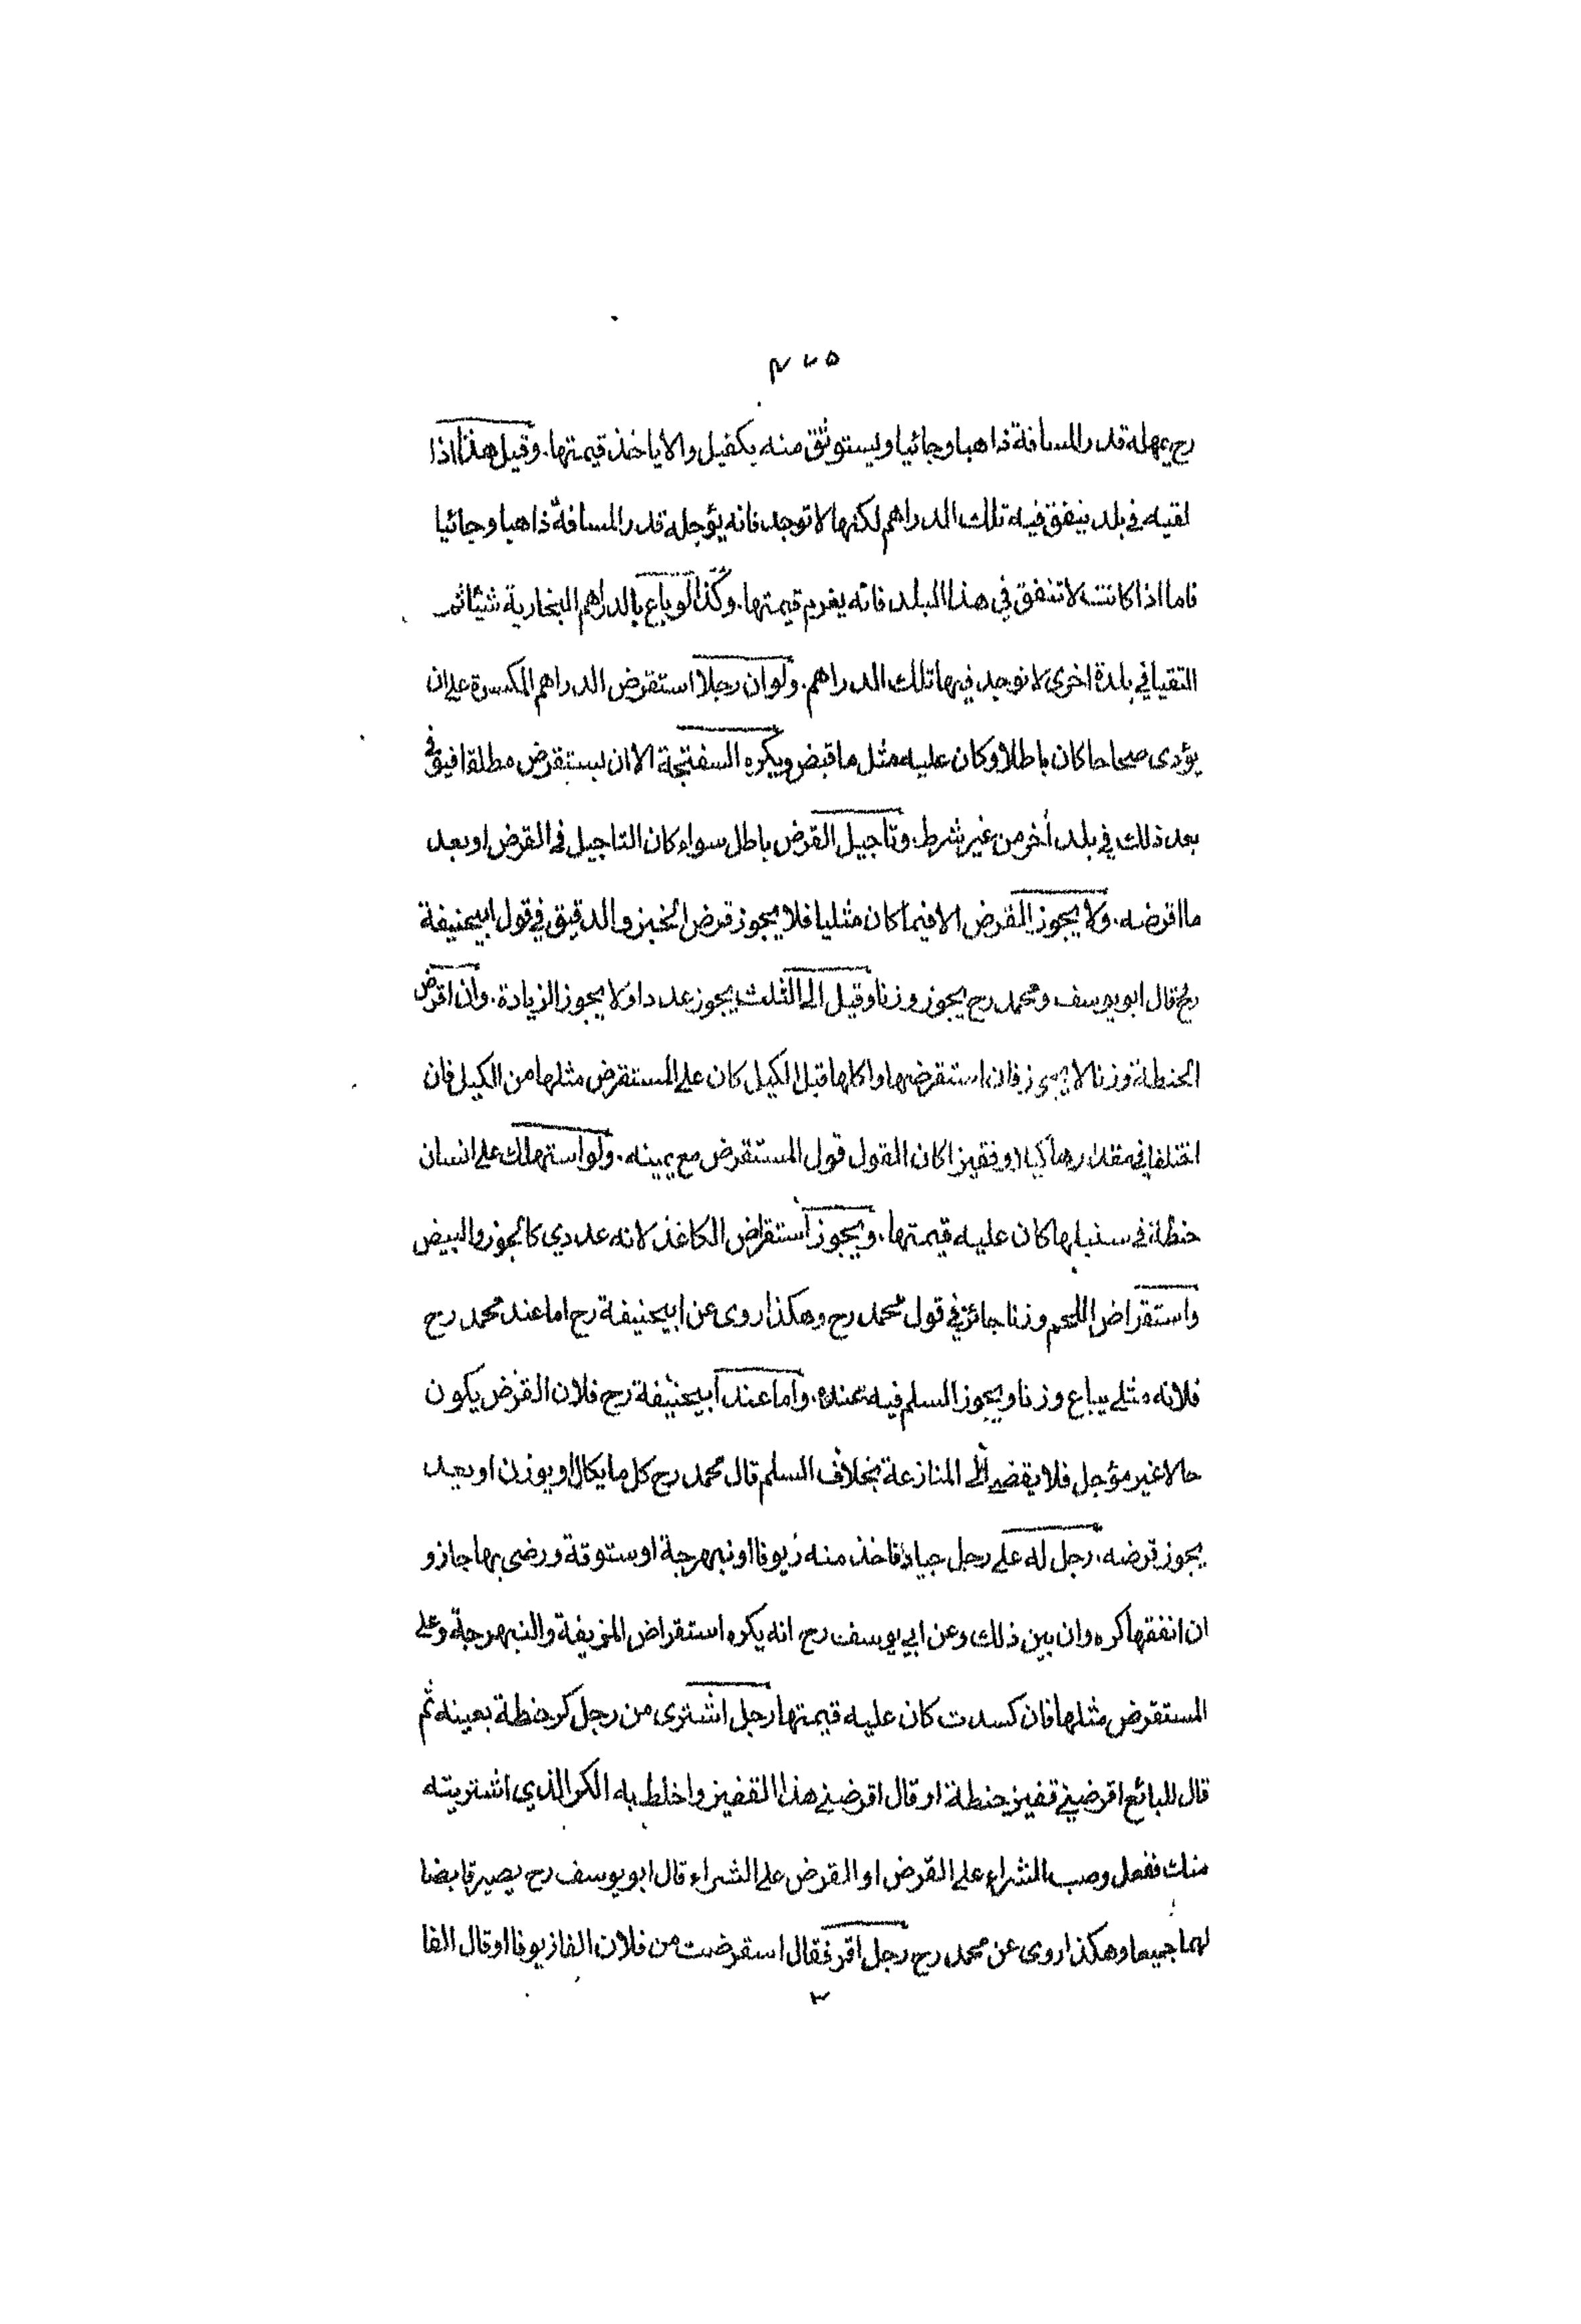 رح يمهله قدر المسافة ذاهبا وجائيا ويستوثق منه بكفيل والا ياخذ قيمتها. وقيل هذا اذا
لقيه في بلد ينفق فيه تلك الدراهم لكنها لا توجد فانه يؤجله قدر المسافة ذاهبا وجائيا
فاما اذا كانت لا تنفق في هذا البلد فانه يغرم قيمتها. وكذا لو باع بالدراهم البخارية شيئا ثم
التقيا في بلدة اخرى لا توجد فيها تلك الدراهم. ولو ان رجلا استقرض الدراهم المكسرة على ان
يؤدى صحاحا كان باطلا وكان عليه مثل ما قبض ويكره السفتجة الا ان يستقرض مطلقا فيوفى
بعد ذلك في بلد أخر من غير شرط. وتاجيل القرض باطل سواء كان التاجيل في القرض او بعد
ما اقرضه. ولا يجوز القرض الا فيما كان مثليا فلا يجوز قرض الخبز والدقيق في قول ابيحنيفة
رح قال ابو يوسف ومحمد رح يجوز وزنا وقيل الى الثلث يجوز عددا ولا يجوز الزيادة. وان اقرض
الحنطة وزنا لا يجوز فان استقرضها واكلها قبل الكيل كان على المستقرض مثلها من الكيل فان
اختلفا في مقدارها كيلا وفقيزا كان القول قول المستقرض مع يمينه. ولو استهلك على انسان
حنطة في سنبلها كان عليه قيمتها. ويجوز استقراض الكاغذ لانه عددي كالجوز والبيض
واستقراض اللحم وزنا جائز في قول محمد رح وهكذا روى عن ابيحنيفة رح اما عند محمد رح
فلانه مثلي يباع وزنا ويجوز السلم فيه عنده. واما عند ابيحنيفة رح فلان القرض يكون
حالا غير مؤجل فلا يفضي الى المنازعة بخلاف السلم قال محمد رح كل ما يكال او يوزن او يعد
يجوز قرضه. رجل له على رجل جياد فاخذ منه زيوفا او نبهرجة او ستوقة ورضى بها جاز و
ان انفقها كره وان بين ذلك وعن ابي يوسف رح انه يكره استقراض المزيفة والنبهرجة وعلى
المستقرض مثلها فان كسدت كان عليه قيمتها رجل اشترى من رجل كر حنطة بعينه ثم
قال للبائع اقرضني قفيز حنطة او قال اقرضني هذا القفيز واخلط به الكر الذي اشتريته
منك ففعل وصب الشراء على القرض او القرض على الشراء قال ابو يوسف رح يصير قابضا
لهما جميعا وهكذا روى عن محمد رح رجل اقر فقال استقرضت من فلان الفا زيوفا او قال الفا